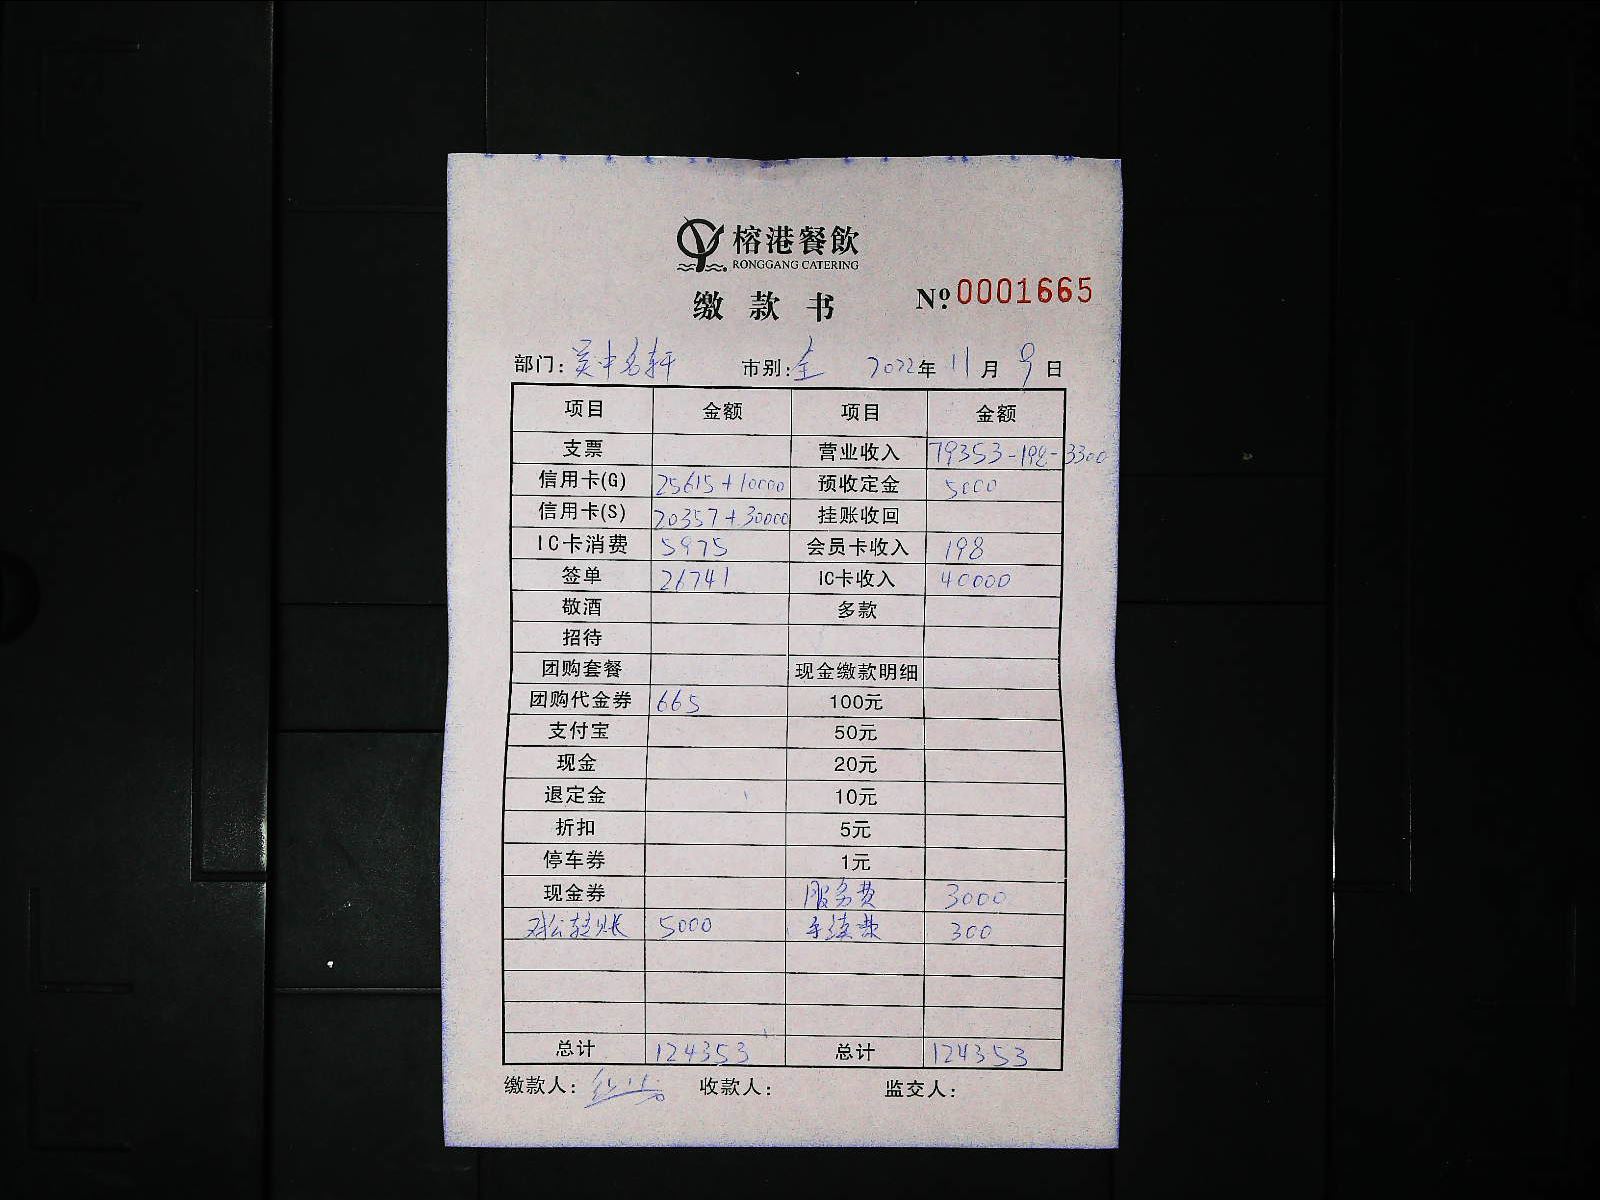 榕港餐飲
RONGGANG CATERING
缴款书 №0001665
部门: 吴中名轩 市别: 全 2022年 11月 9日
项目 金额 项目 金额
支票 营业收入 79353-198-3300
信用卡(G) 25615+10000 预收定金 5000
信用卡(S) 20357+30000 挂账收回
IC卡消费 5975 会员卡收入 198
签单 26741 IC卡收入 40000
敬酒 多款
招待
团购套餐 现金缴款明细
团购代金券 665 100元
支付宝 50元
现金 20元
退定金 10元
折扣 5元
停车券 1元
现金券 服务费 3000
对公转账 5000 手续费 300
总计 124353 总计 124353
缴款人: 收款人: 监交人: